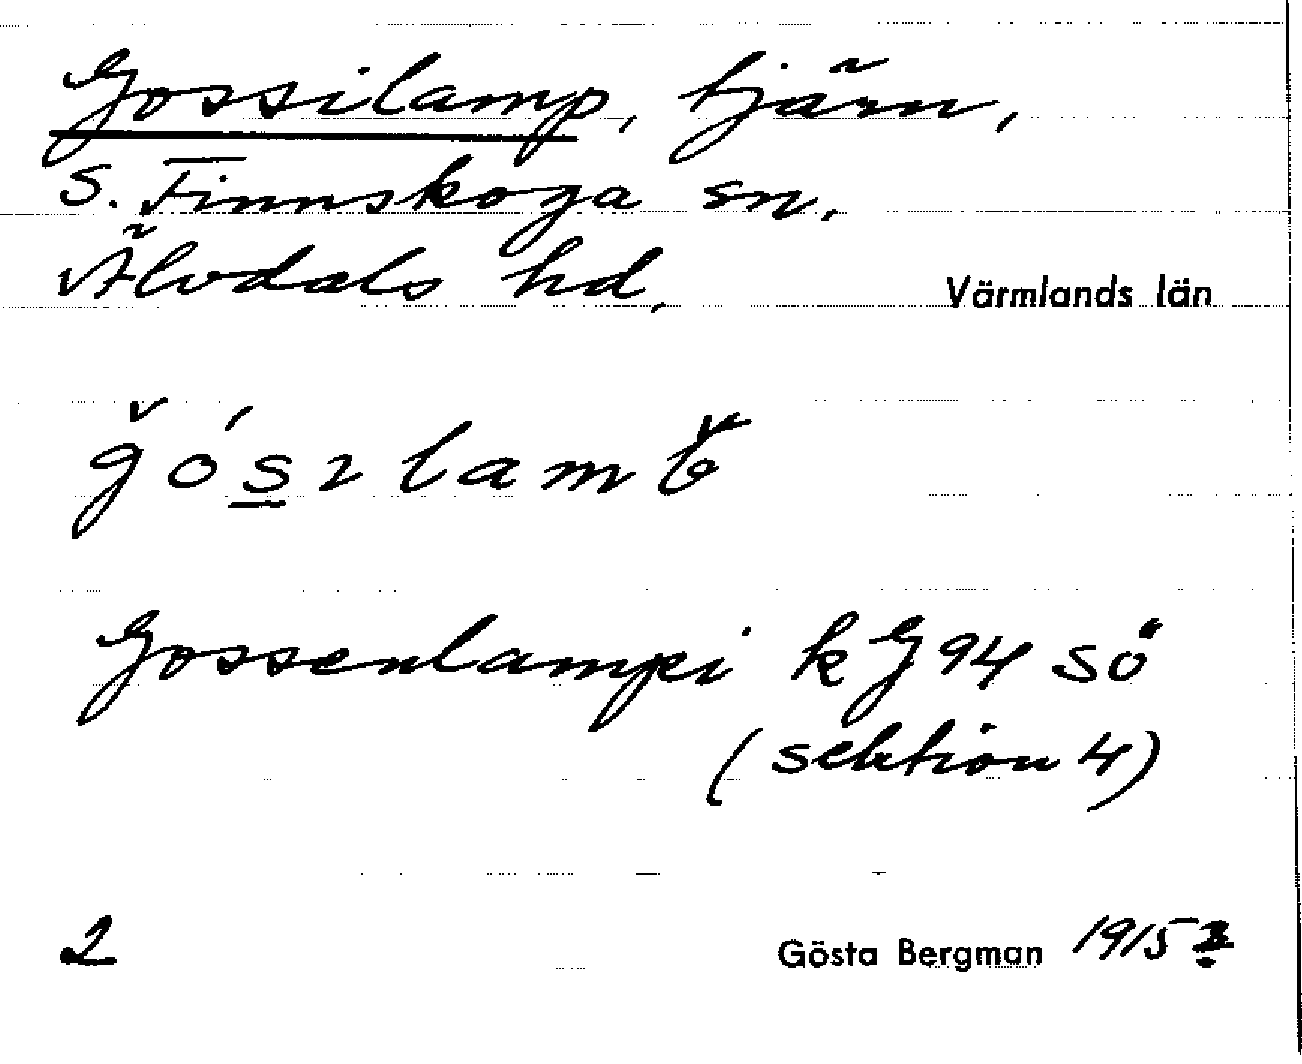 Gossilamp, tjärn,
S. Finnskoga sn,
Älvdals hd.
Värmlands län
ğós̲ılamb̆
Gossenlampi kG94 sö
(sektion 4)
2
Gösta Bergman 1915